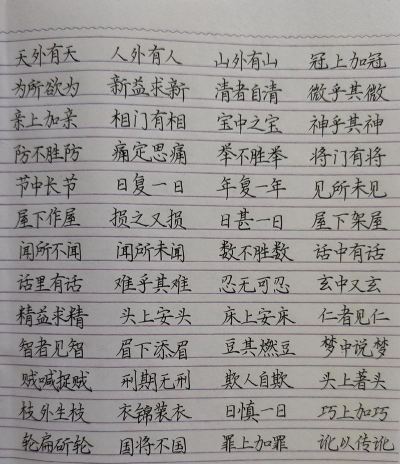 天外有天 人外有人 山外有山 冠上加冠
为所欲为 新益求新 清者自清 微乎其微
亲上加亲 相门有相 宝中之宝 神乎其神
防不胜防 痛定思痛 举不胜举 将门有将
节中长节 日复一日 年复一年 见所未见
屋下作屋 损之又损 日甚一日 屋下架屋
闻所不闻 闻所未闻 数不胜数 话中有话
话里有话 难乎其难 忍无可忍 玄中又玄
精益求精 头上安头 床上安床 仁者见仁
智者见智 眉下添眉 豆其燃豆 梦中说梦
贼喊捉贼 刑期无刑 欺人自欺 头上著头
枝外生枝 衣锦装衣 日慎一日 巧上加巧
轮扁斫轮 国将不国 罪上加罪 讹以传讹